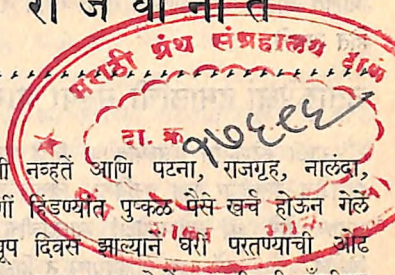 रा ज वा ना त
मराठी ग्रंथ संग्रहालय ठाणें
दा. क्र. १७६९६
नव्हतें आणि पटना, राजगृह, नालंदा,
हिंडण्यांत पुष्कळ पैसे खर्च होऊन गेले
दिवस झाल्यानें घरीं परतण्याची ओढ